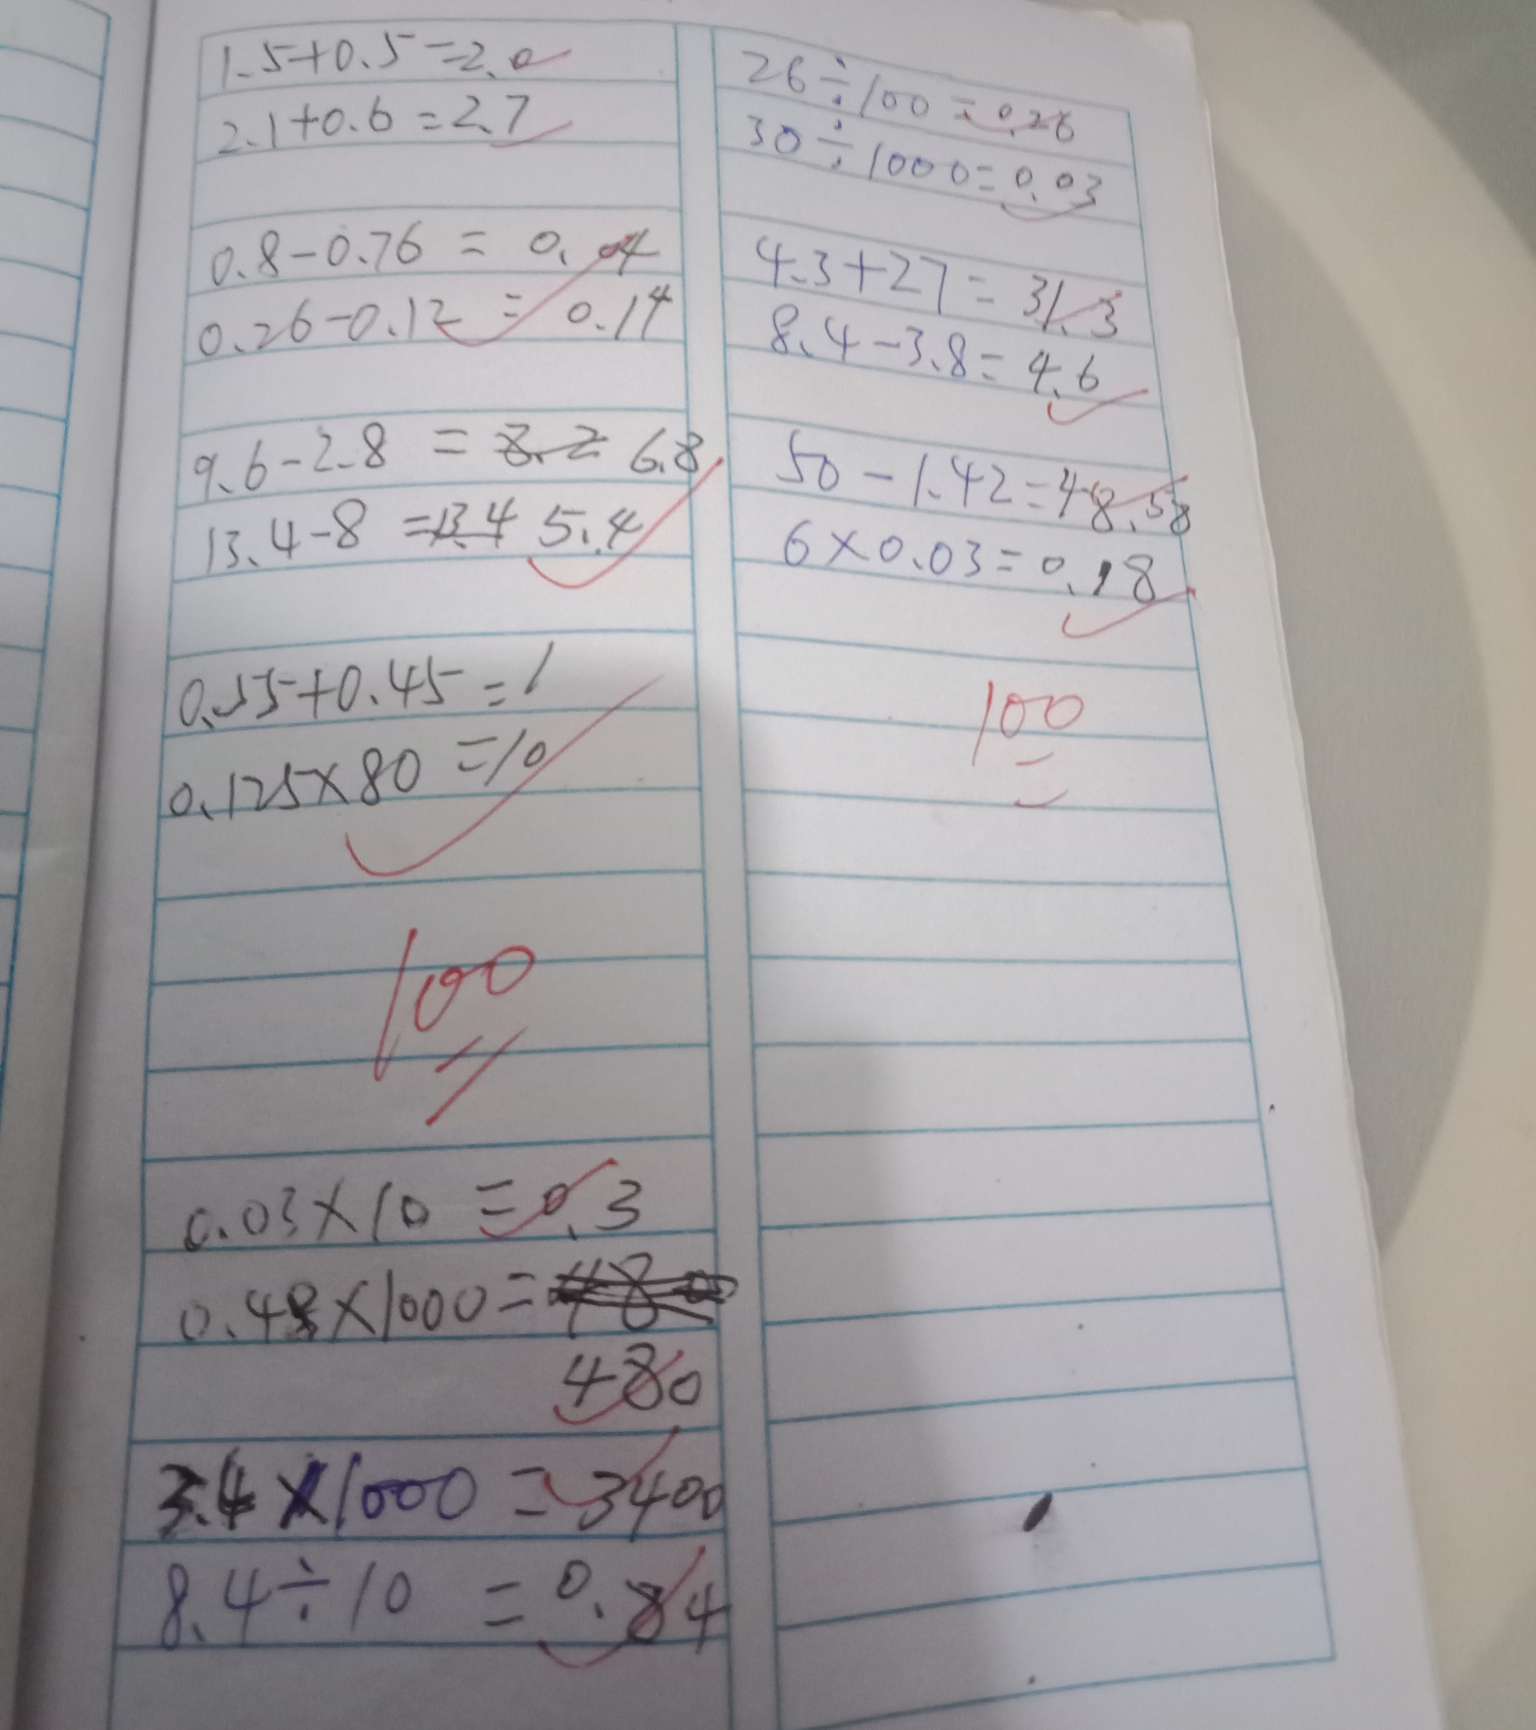 1.5+0.5=2.0
2.1+0.6=2.7
0.8-0.76=0.04
0.26-0.12=0.14
9.6-2.8=8.2 6.8
13.4-8=13.4 5.4
0.55+0.45=1
0.125×80=10
100
0.03×10=0.3
0.48×1000=480
480
3.4×1000=3400
8.4÷10=0.84
26÷100=0.26
30÷1000=0.03
4.3+27=31.3
8.4-3.8=4.6
50-1.42=48.58
6×0.03=0.18
100